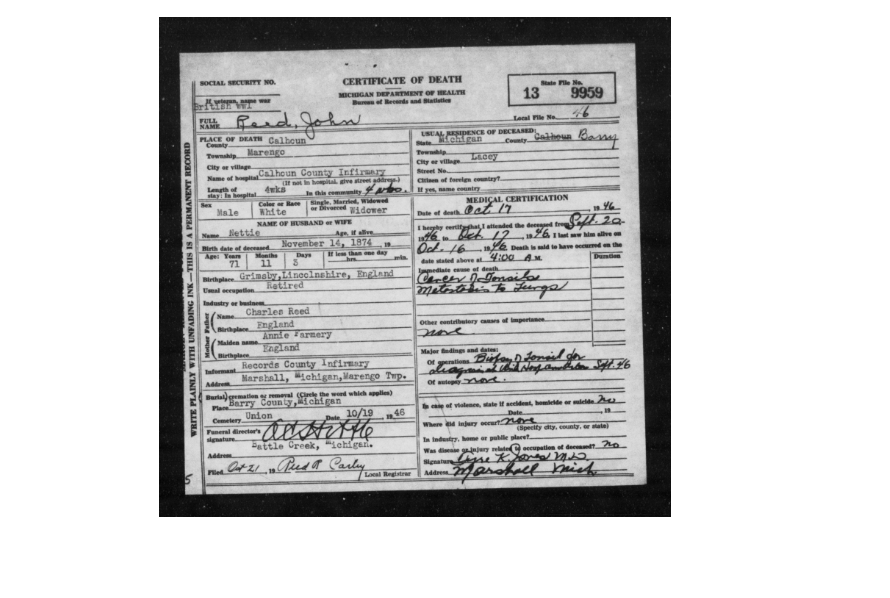 SOCIAL SECURITY NO.
CERTIFICATE OF DEATH
MICHIGAN DEPARTMENT OF HEALTH
Bureau of Records and Statistics
State File No.
13 9959
If veteran, name war
British WW1
Local File No. 46
FULL NAME Reed, John
WRITE PLAINLY WITH UNFADING INK—THIS IS A PERMANENT RECORD
PLACE OF DEATH
County Calhoun
Township Marengo
City or village
Name of hospital Calhoun County Infirmary
(If not in hospital, give street address.)
Length of stay: In hospital 4wks In this community 4 wks.
USUAL RESIDENCE OF DECEASED:
State Michigan County Calhoun Barry
Township Lacey
City or village
Street No.
Citizen of foreign country?
If yes, name country
Sex Male
Color or Race White
Single, Married, Widowed or Divorced Widower
NAME OF HUSBAND or WIFE
Name Nettie Age, if alive
Birth date of deceased November 14, 1874 , 19
Age: Years 71 Months 11 Days 3 If less than one day hrs. min.
Birthplace Grimsby,Lincolnshire, England
Usual occupation Retired
Industry or business
Father Name Charles Reed
Birthplace England
Mother Maiden name Annie Farmery
Birthplace England
Informant Records County Infirmary
Address Marshall, Michigan,Marengo Twp.
Burial, cremation or removal (Circle the word which applies)
Place Barry County,Michigan
Cemetery Union Date 10/19 1946
Funeral director's signature
Address Battle Creek, Michigan.
Filed Oct 21 , 19 Local Registrar
5
MEDICAL CERTIFICATION
Date of death Oct 17 1946
I hereby certify that I attended the deceased from Sept. 20
1946 to Oct 17 1946. I last saw him alive on
Oct. 16 1946. Death is said to have occurred on the
date stated above at 4:00 A.M.
Duration
Immediate cause of death
Cancer of Tonsils
Metastasis to Lungs
Other contributory causes of importance
none
Major findings and dates:
Of operations Biopsy of Tonsil for
diagnosis at Sept. 46
Of autopsy none.
In case of violence, state if accident, homicide or suicide no
Date 19
Where did injury occur? none
(Specify city, county, or state)
In industry, home or public place?
Was disease or injury related to occupation of deceased? no
Signature K Jones M.D.
Address Marshall Mich